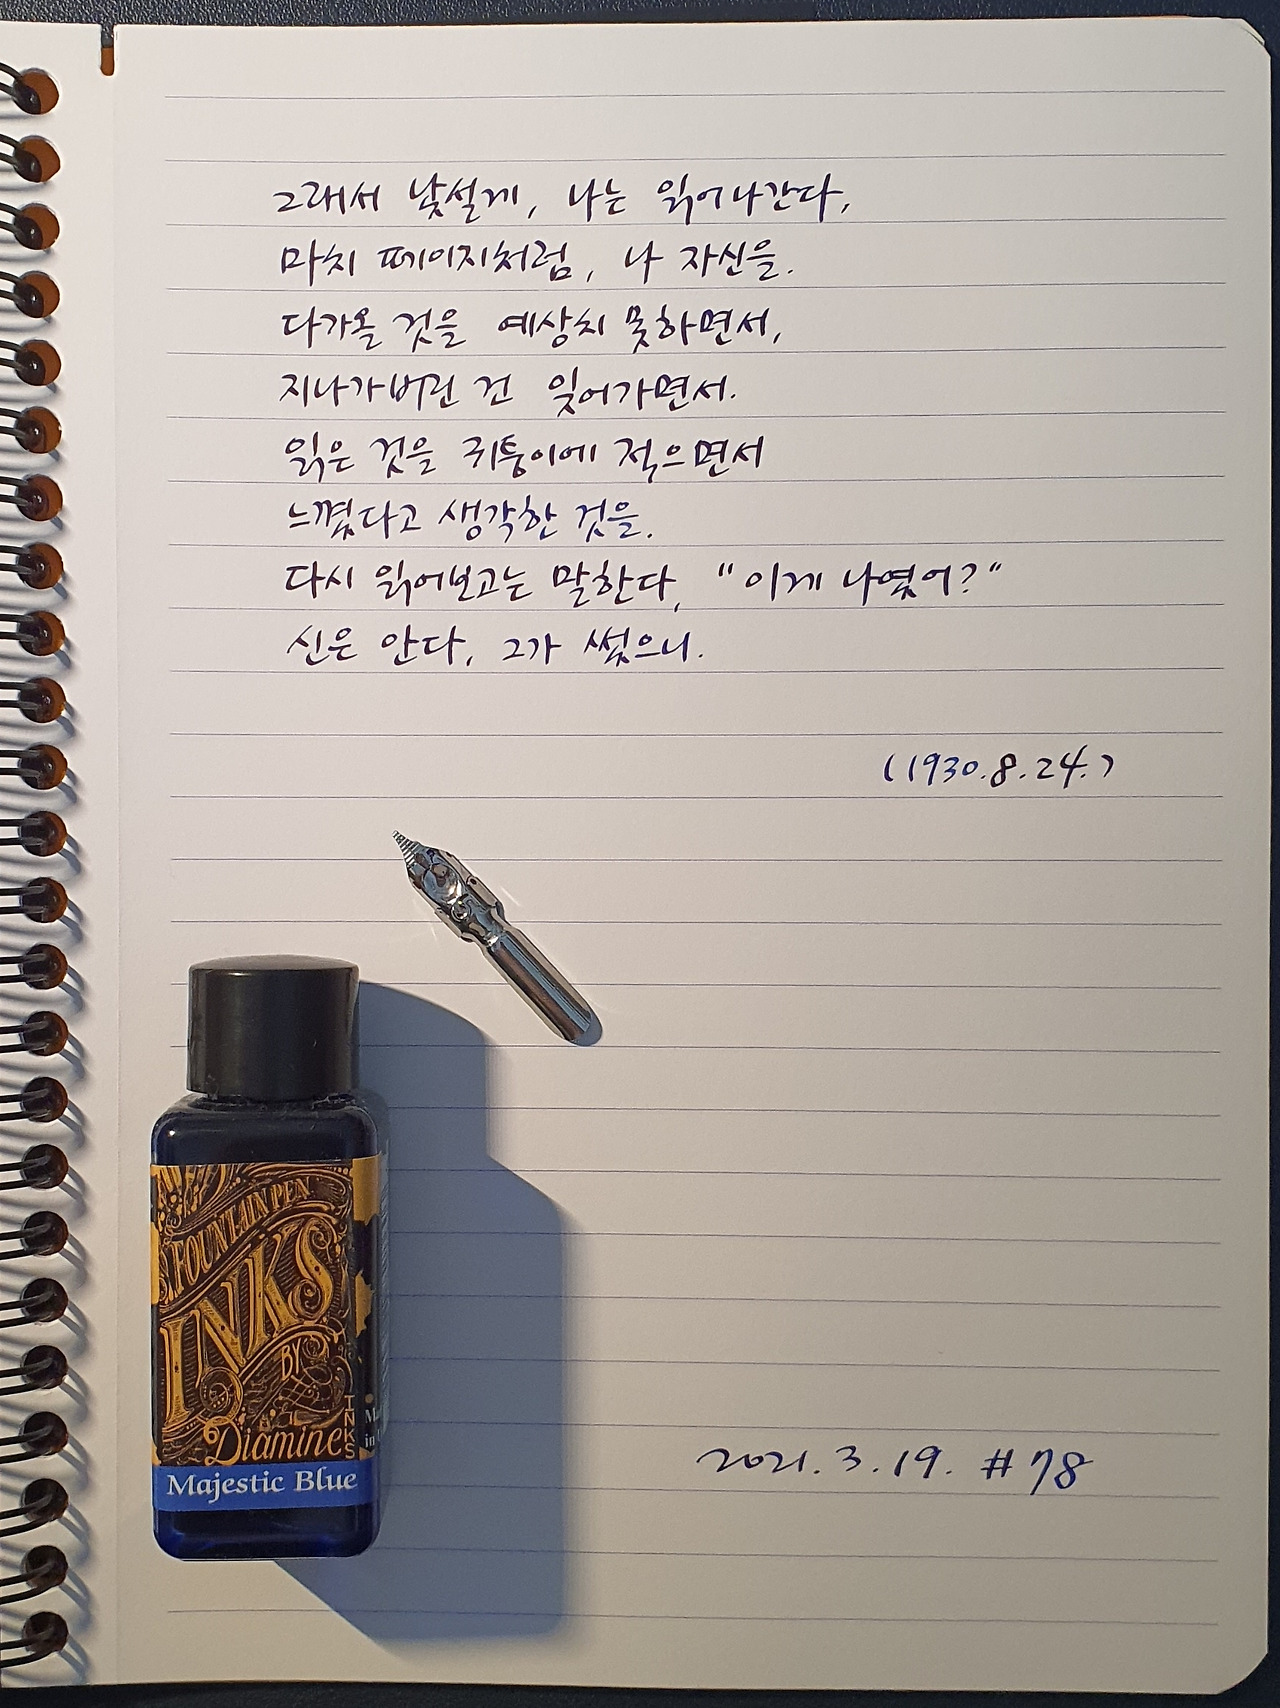 그래서 낯설게, 나는 읽어나간다,
마치 페이지처럼, 나 자신을.
다가올 것을 예상치 못하면서,
지나가버린 건 잊어가면서.
읽은 것을 귀퉁이에 적으면서
느꼈다고 생각한 것을.
다시 읽어보고는 말한다, "이게 나였어?"
신은 안다, 그가 썼으니.
(1930.8.24.)
FOUNTAIN PEN
INKS
BY
Diamine
INKS
Majestic Blue
2021.3.19. #78